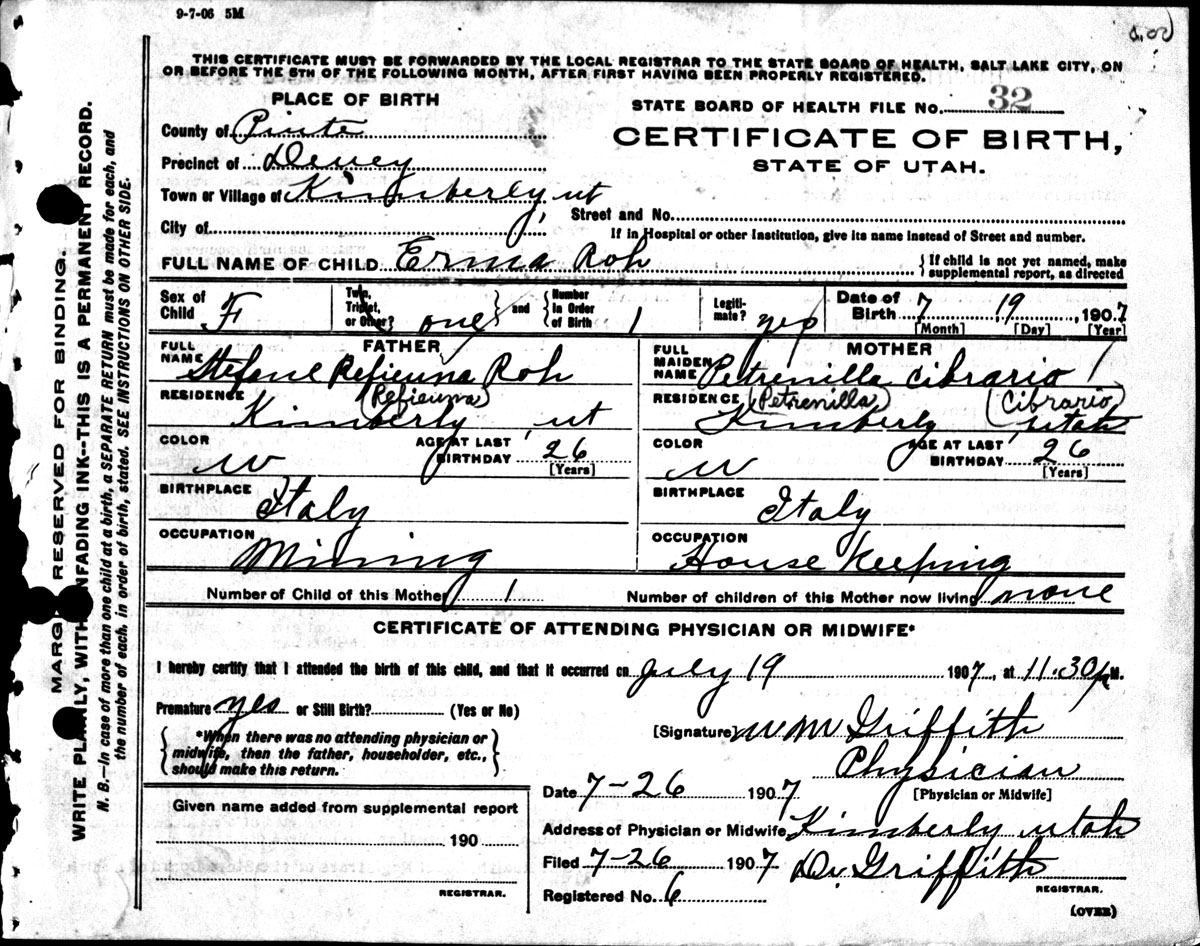 9-7-06 5M
THIS CERTIFICATE MUST BE FORWARDED BY THE LOCAL REGISTRAR TO THE STATE BOARD OF HEALTH, SALT LAKE CITY, ON
OR BEFORE THE 5TH OF THE FOLLOWING MONTH, AFTER FIRST HAVING BEEN PROPERLY REGISTERED.
PLACE OF BIRTH
STATE BOARD OF HEALTH FILE NO. 32
County of Piute
CERTIFICATE OF BIRTH,
Precinct of Deuey
STATE OF UTAH.
Town or Village of Kimberly, ut
Street and No.
City of
If in Hospital or other Institution, give its name instead of Street and number.
FULL NAME OF CHILD Erma Roh
{If child is not yet named, make
supplemental report, as directed
Sex of Child F
Twin, Triplet, or Other? one and Number in Order of Birth 1
Legiti-mate? yes
Date of Birth 7 19, 1907
[Month] [Day] [Year]
FATHER
FULL NAME Stefane Refieuna Roh
RESIDENCE (Refieuna)
Kimberly, ut
COLOR W AGE AT LAST BIRTHDAY 26
[Years]
BIRTHPLACE
Italy
OCCUPATION
Mining
MOTHER
FULL MAIDEN NAME Petrenilla Cibrario
RESIDENCE (Petrenilla) (Cibrario)
Kimberly, Utah
COLOR W AGE AT LAST BIRTHDAY 26
[Years]
BIRTHPLACE
Italy
OCCUPATION
House Keeping
Number of Child of this Mother 1 Number of children of this Mother now living none
CERTIFICATE OF ATTENDING PHYSICIAN OR MIDWIFE*
I hereby certify that I attended the birth of this child, and that it occurred on July 19 1907, at 11.30 P.M.
Premature yes or Still Birth? (Yes or No)
{*When there was no attending physician or
midwife, then the father, householder, etc.,
should make this return.}
[Signature] Wm Griffith
Physician
[Physician or Midwife]
Date 7-26 1907
Given name added from supplemental report
190
REGISTRAR.
Address of Physician or Midwife Kimberly Utah
Filed 7-26 1907 D. Griffith
REGISTRAR.
Registered No. 6
(OVER)
MARGIN RESERVED FOR BINDING.
WRITE PLAINLY, WITH UNFADING INK--THIS IS A PERMANENT RECORD.
N. B.—In case of more than one child at a birth, a SEPARATE RETURN must be made for each, and
the number of each, in order of birth, stated. SEE INSTRUCTIONS ON OTHER SIDE.